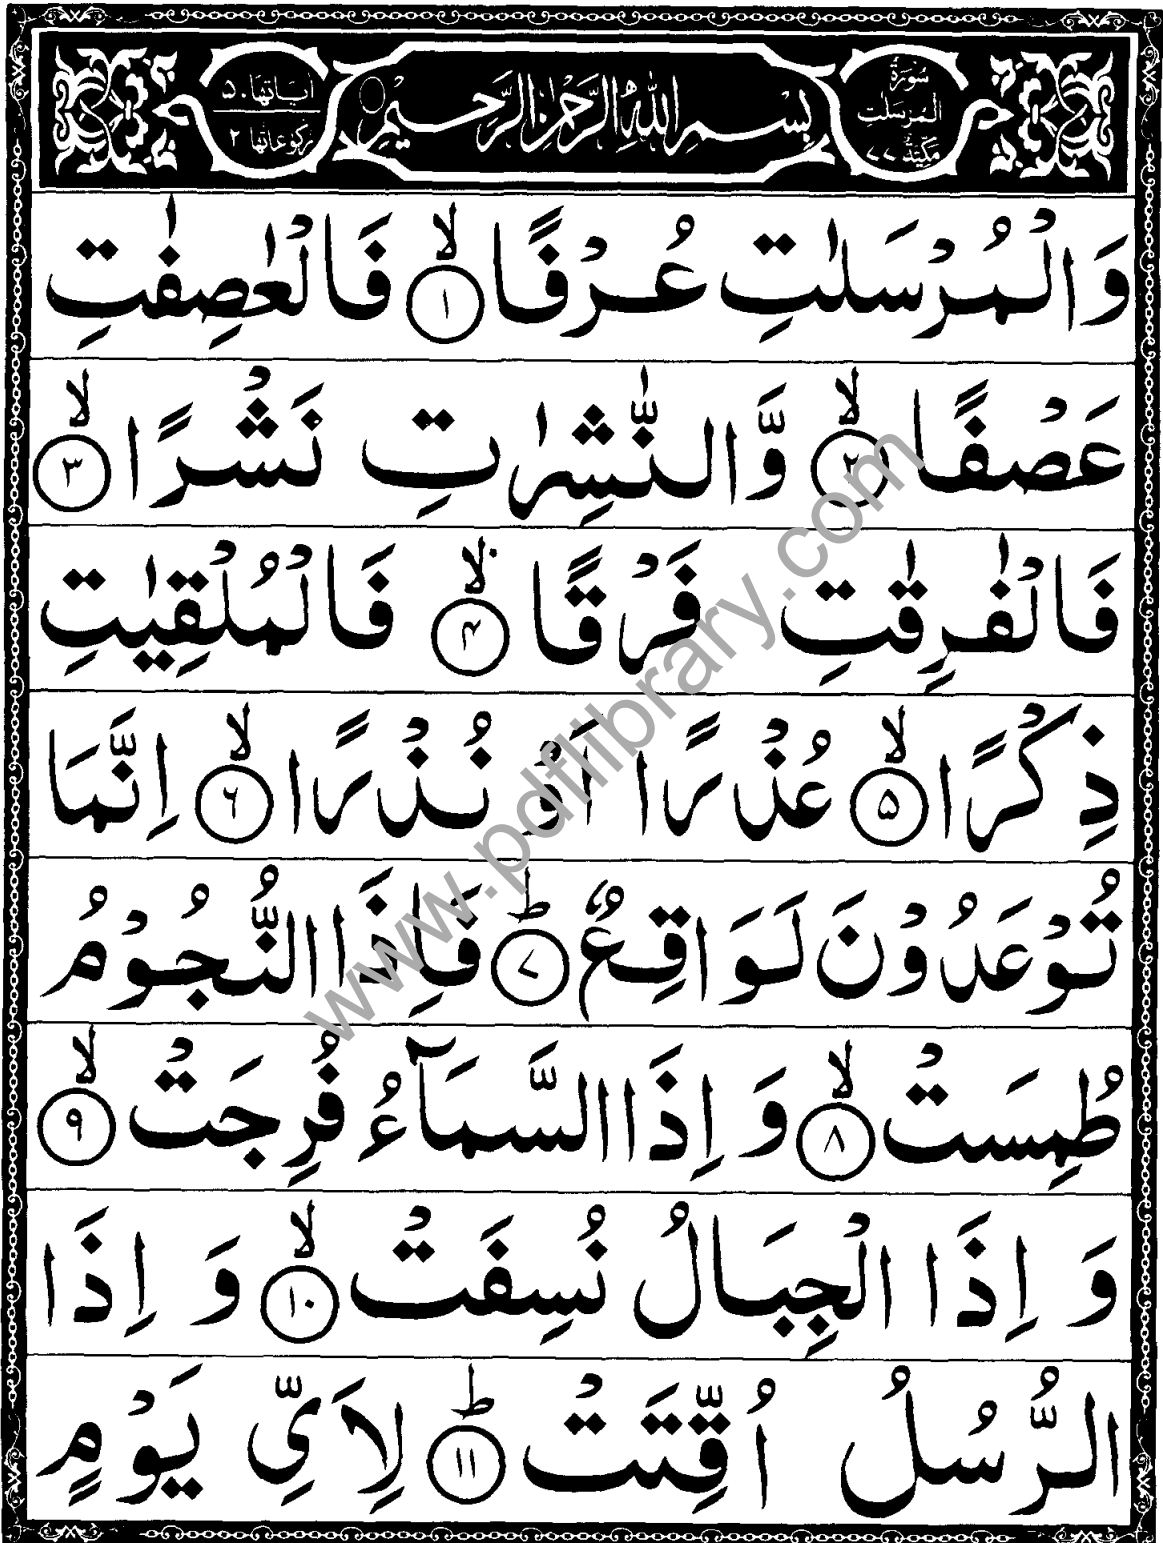 سُورَةُ
المُرسَلٰتِ
مَكِّيَّةٌ ٧٧
بِسْمِ اللهِ الرَّحْمٰنِ الرَّحِيْمِ
اٰیاتها ۵۰
رکوعاتها ۲
وَالْمُرْسَلٰتِ عُرْفًا ۙ﴿۱﴾ فَالْعٰصِفٰتِ
عَصْفًا ۙ﴿۲﴾ وَّالنّٰشِرٰتِ نَشْرًا ۙ﴿۳﴾
فَالْفٰرِقٰتِ فَرْقًا ۙ﴿۴﴾ فَالْمُلْقِيٰتِ
ذِكْرًا ۙ﴿۵﴾ عُذْرًا اَوْ نُذْرًا ۙ﴿۶﴾ اِنَّمَا
تُوْعَدُوْنَ لَوَاقِعٌ ؕ﴿۷﴾ فَاِذَا النُّجُوْمُ
طُمِسَتْ ۙ﴿۸﴾ وَ اِذَا السَّمَآءُ فُرِجَتْ ۙ﴿۹﴾
وَ اِذَا الْجِبَالُ نُسِفَتْ ۙ﴿۱۰﴾ وَ اِذَا
الرُّسُلُ اُقِّتَتْ ؕ﴿۱۱﴾ لِاَيِّ يَوْمٍ
www.pdflibrary.com